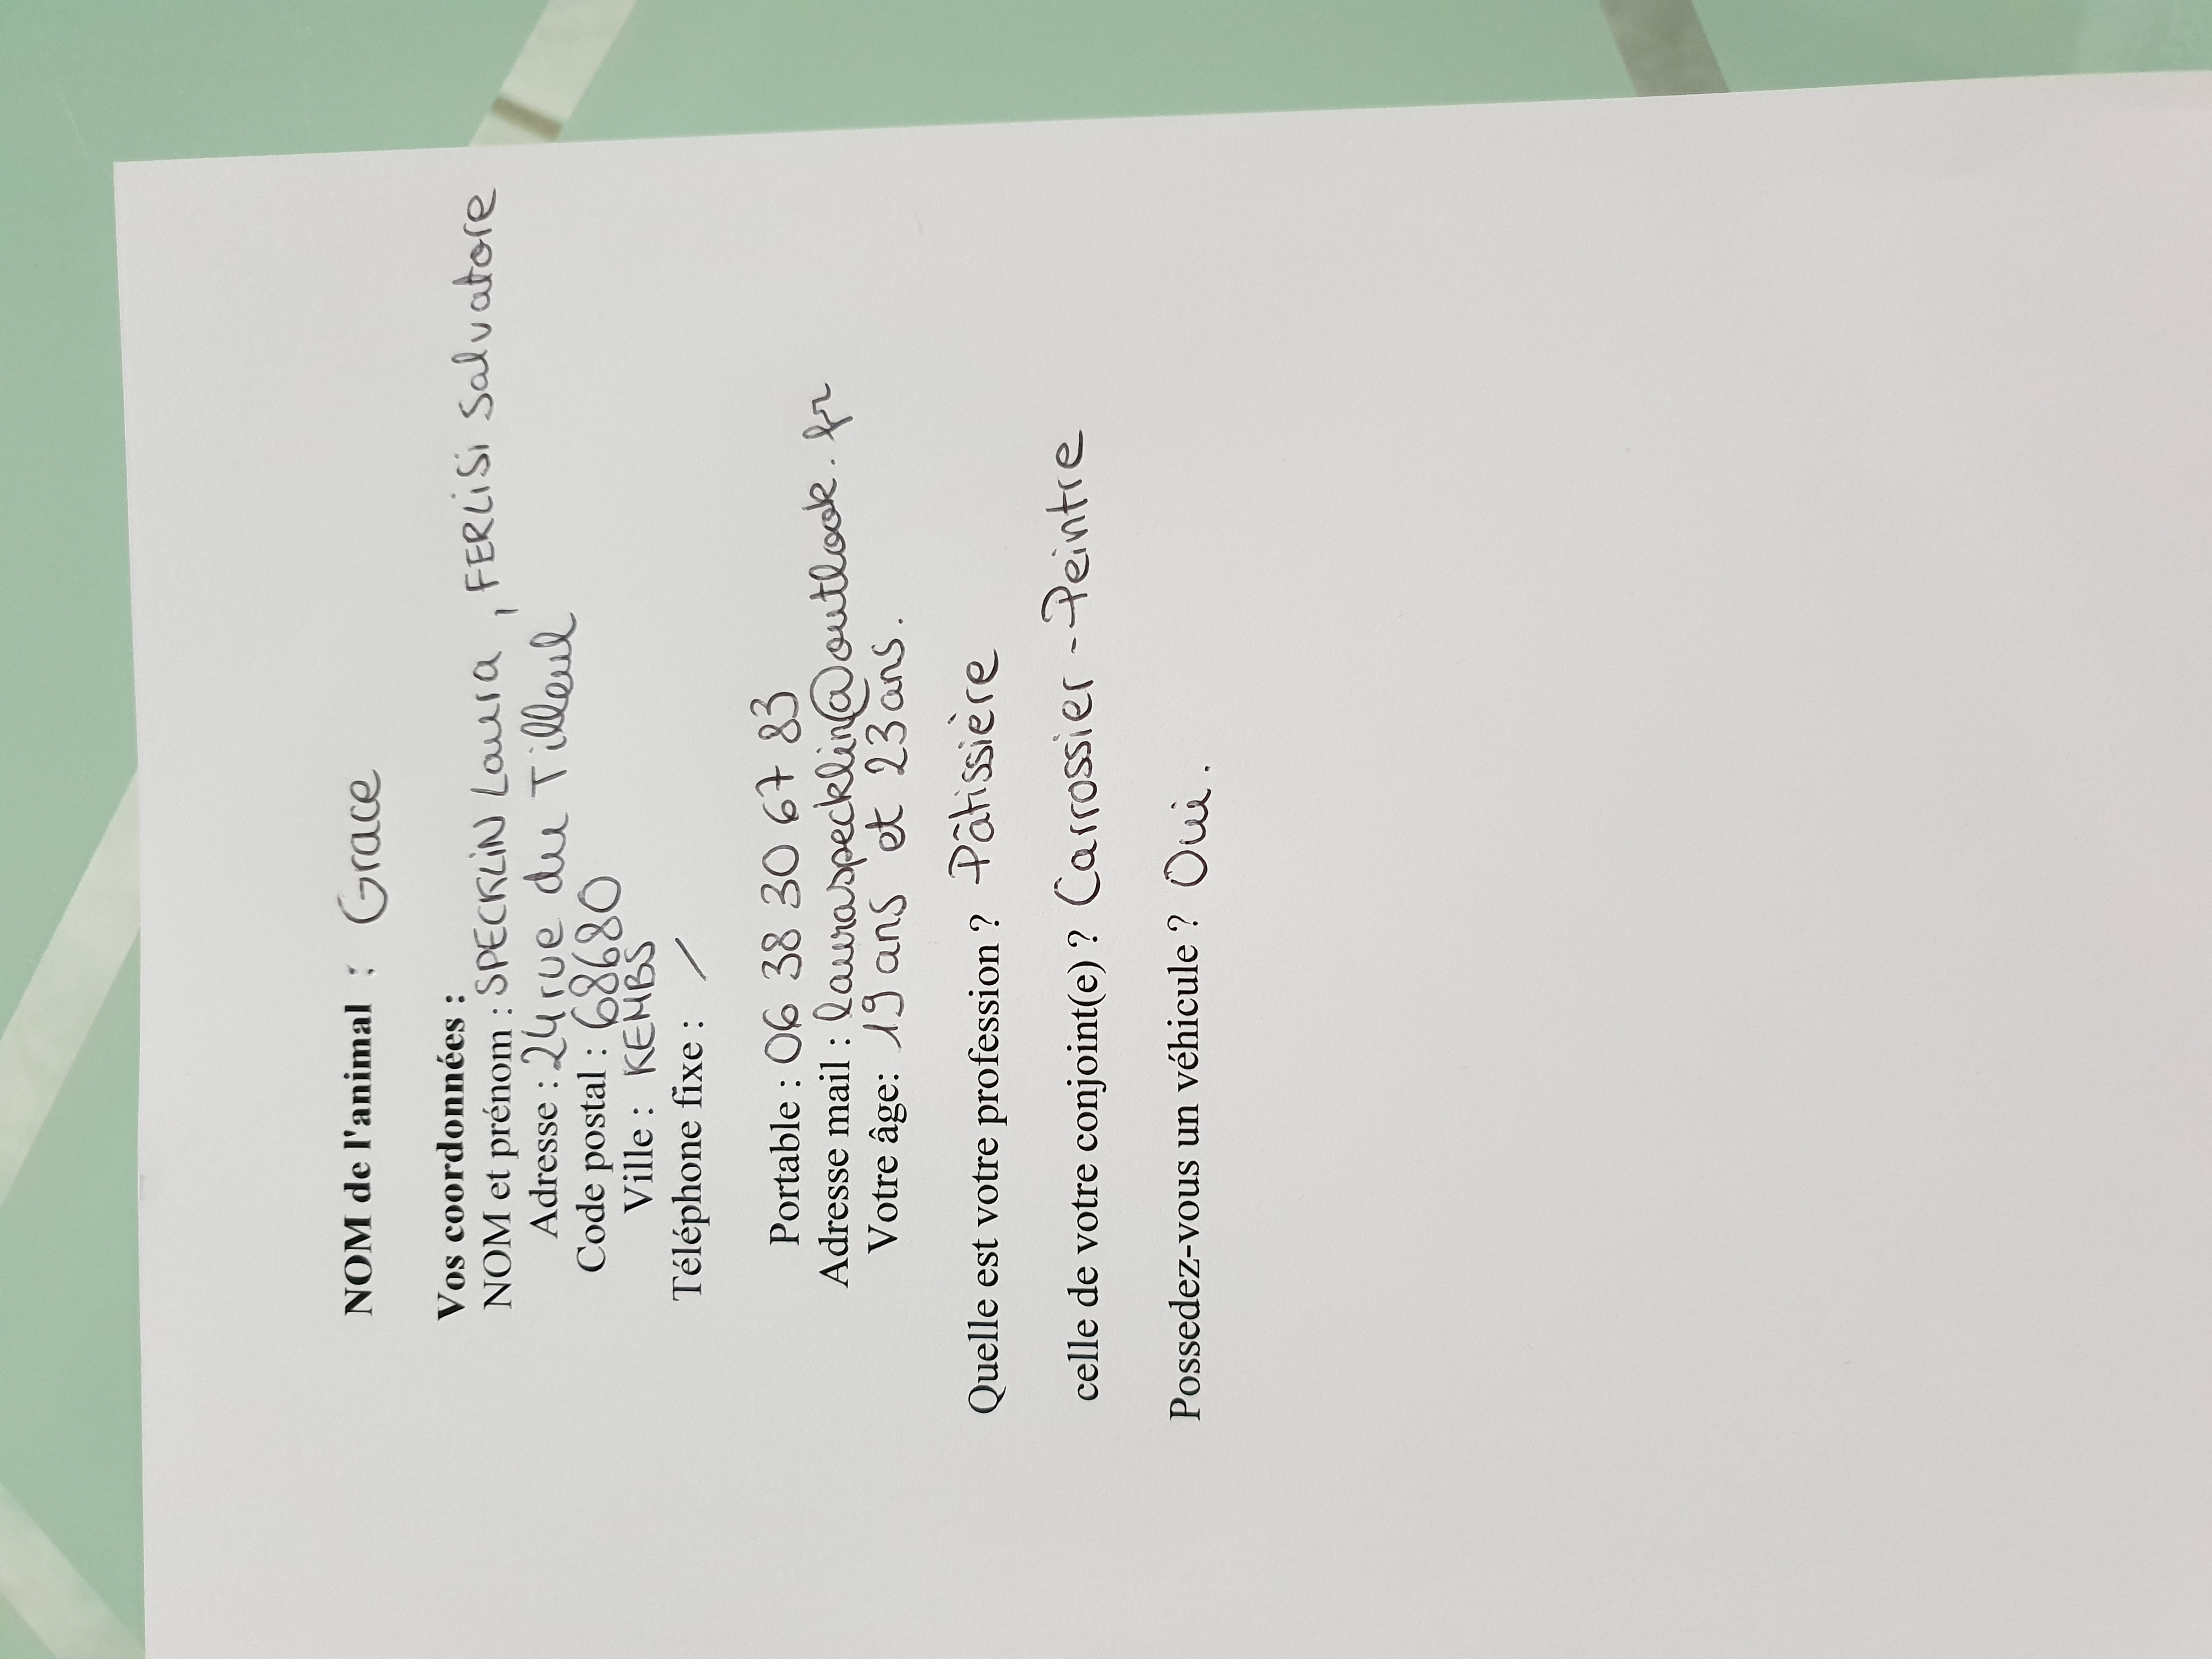 NOM de l'animal : Grace
Vos coordonnées :
NOM et prénom : SPECKLIN Laura , FERLISI Salvatore
Adresse : 24 rue du Tilleul
Code postal : 68680
Ville : KEMBS
Téléphone fixe : /
Portable : 06 38 30 67 83
Adresse mail : lauraspecklin@outlook.fr
Votre âge: 19 ans et 23 ans.
Quelle est votre profession ? Pâtissière
celle de votre conjoint(e) ? Carrossier - Peintre
Possedez-vous un véhicule ? Oui.